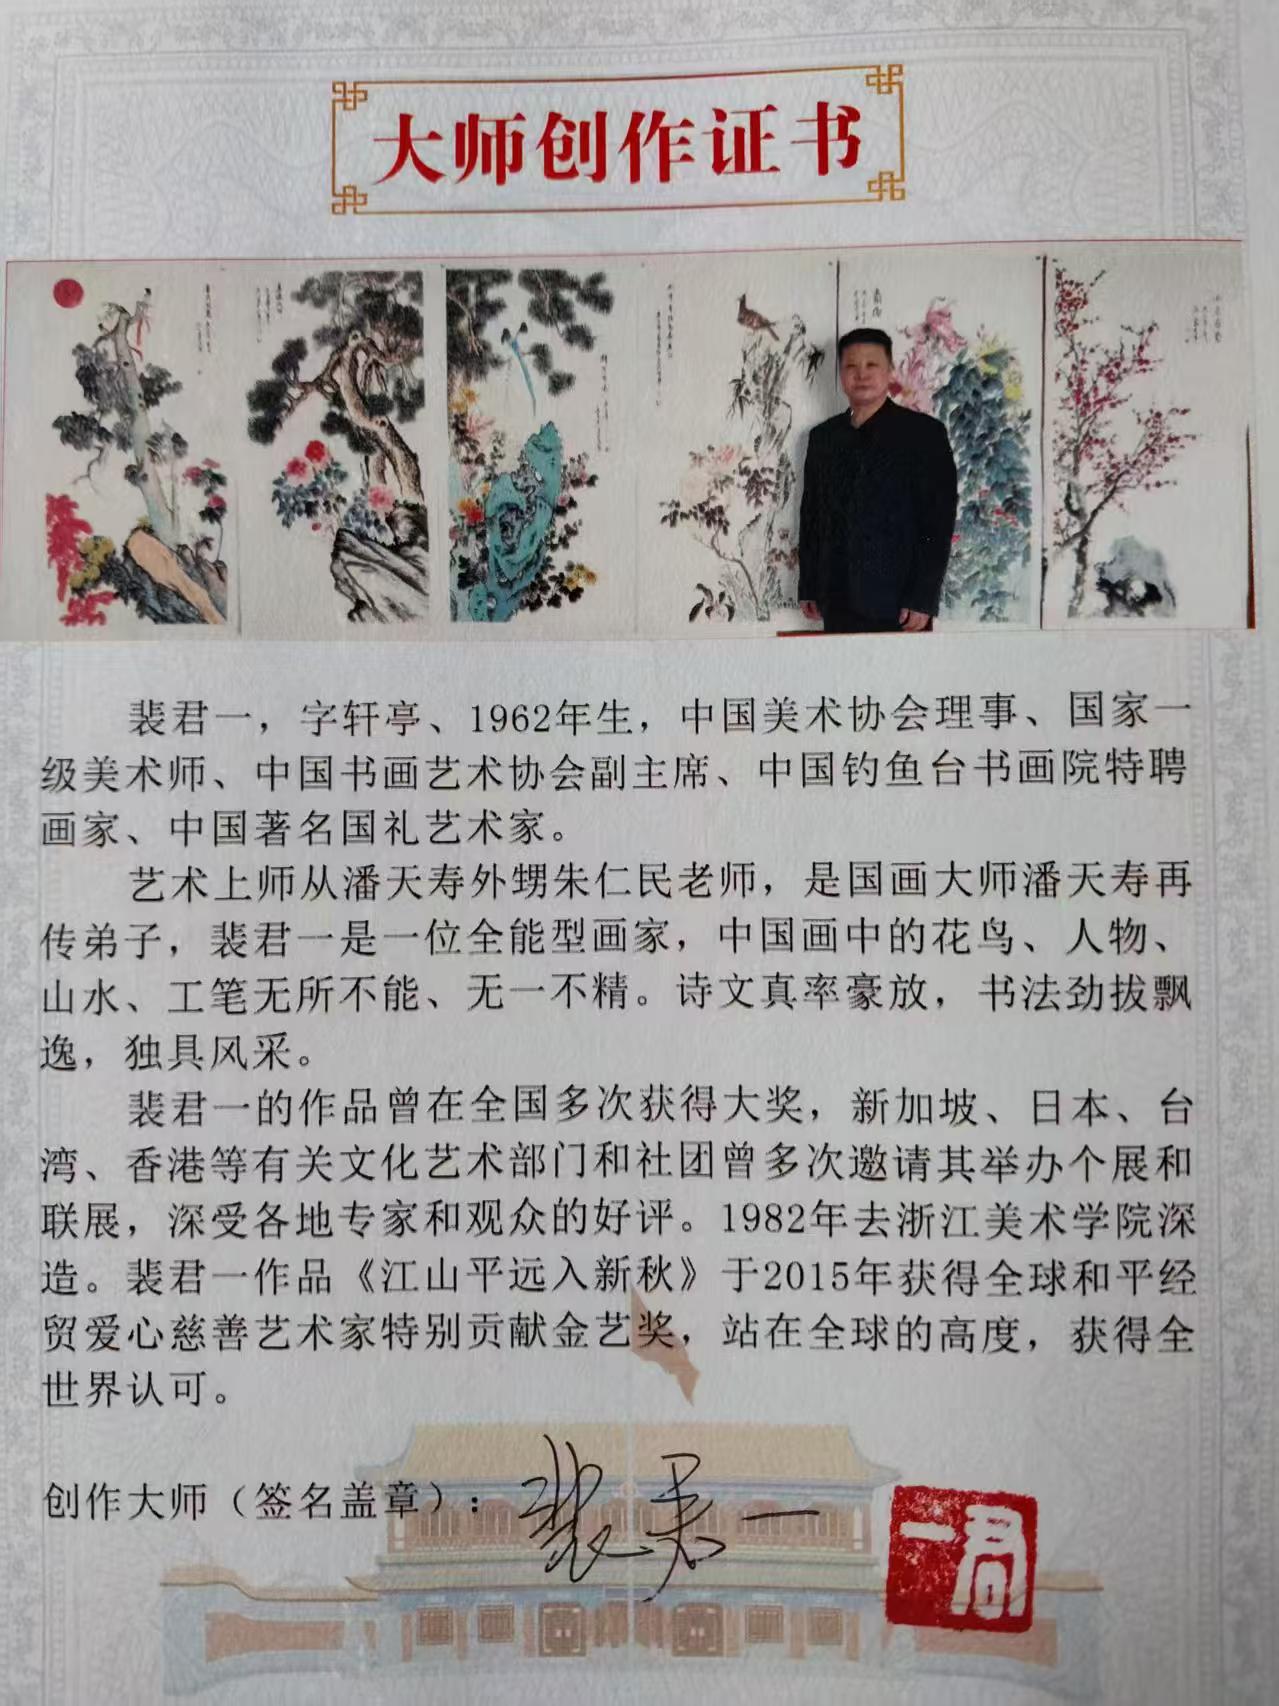 大师创作证书
裴君一，字轩亭、1962年生，中国美术协会理事、国家一
级美术师、中国书画艺术协会副主席、中国钓鱼台书画院特聘
画家、中国著名国礼艺术家。
艺术上师从潘天寿外甥朱仁民老师，是国画大师潘天寿再
传弟子，裴君一是一位全能型画家，中国画中的花鸟、人物、
山水、工笔无所不能、无一不精。诗文真率豪放，书法劲拔飘
逸，独具风采。
裴君一的作品曾在全国多次获得大奖，新加坡、日本、台
湾、香港等有关文化艺术部门和社团曾多次邀请其举办个展和
联展，深受各地专家和观众的好评。1982年去浙江美术学院深
造。裴君一作品《江山平远入新秋》于2015年获得全球和平经
贸爱心慈善艺术家特别贡献金艺奖，站在全球的高度，获得全
世界认可。
创作大师（签名盖章）：裴君一
君一